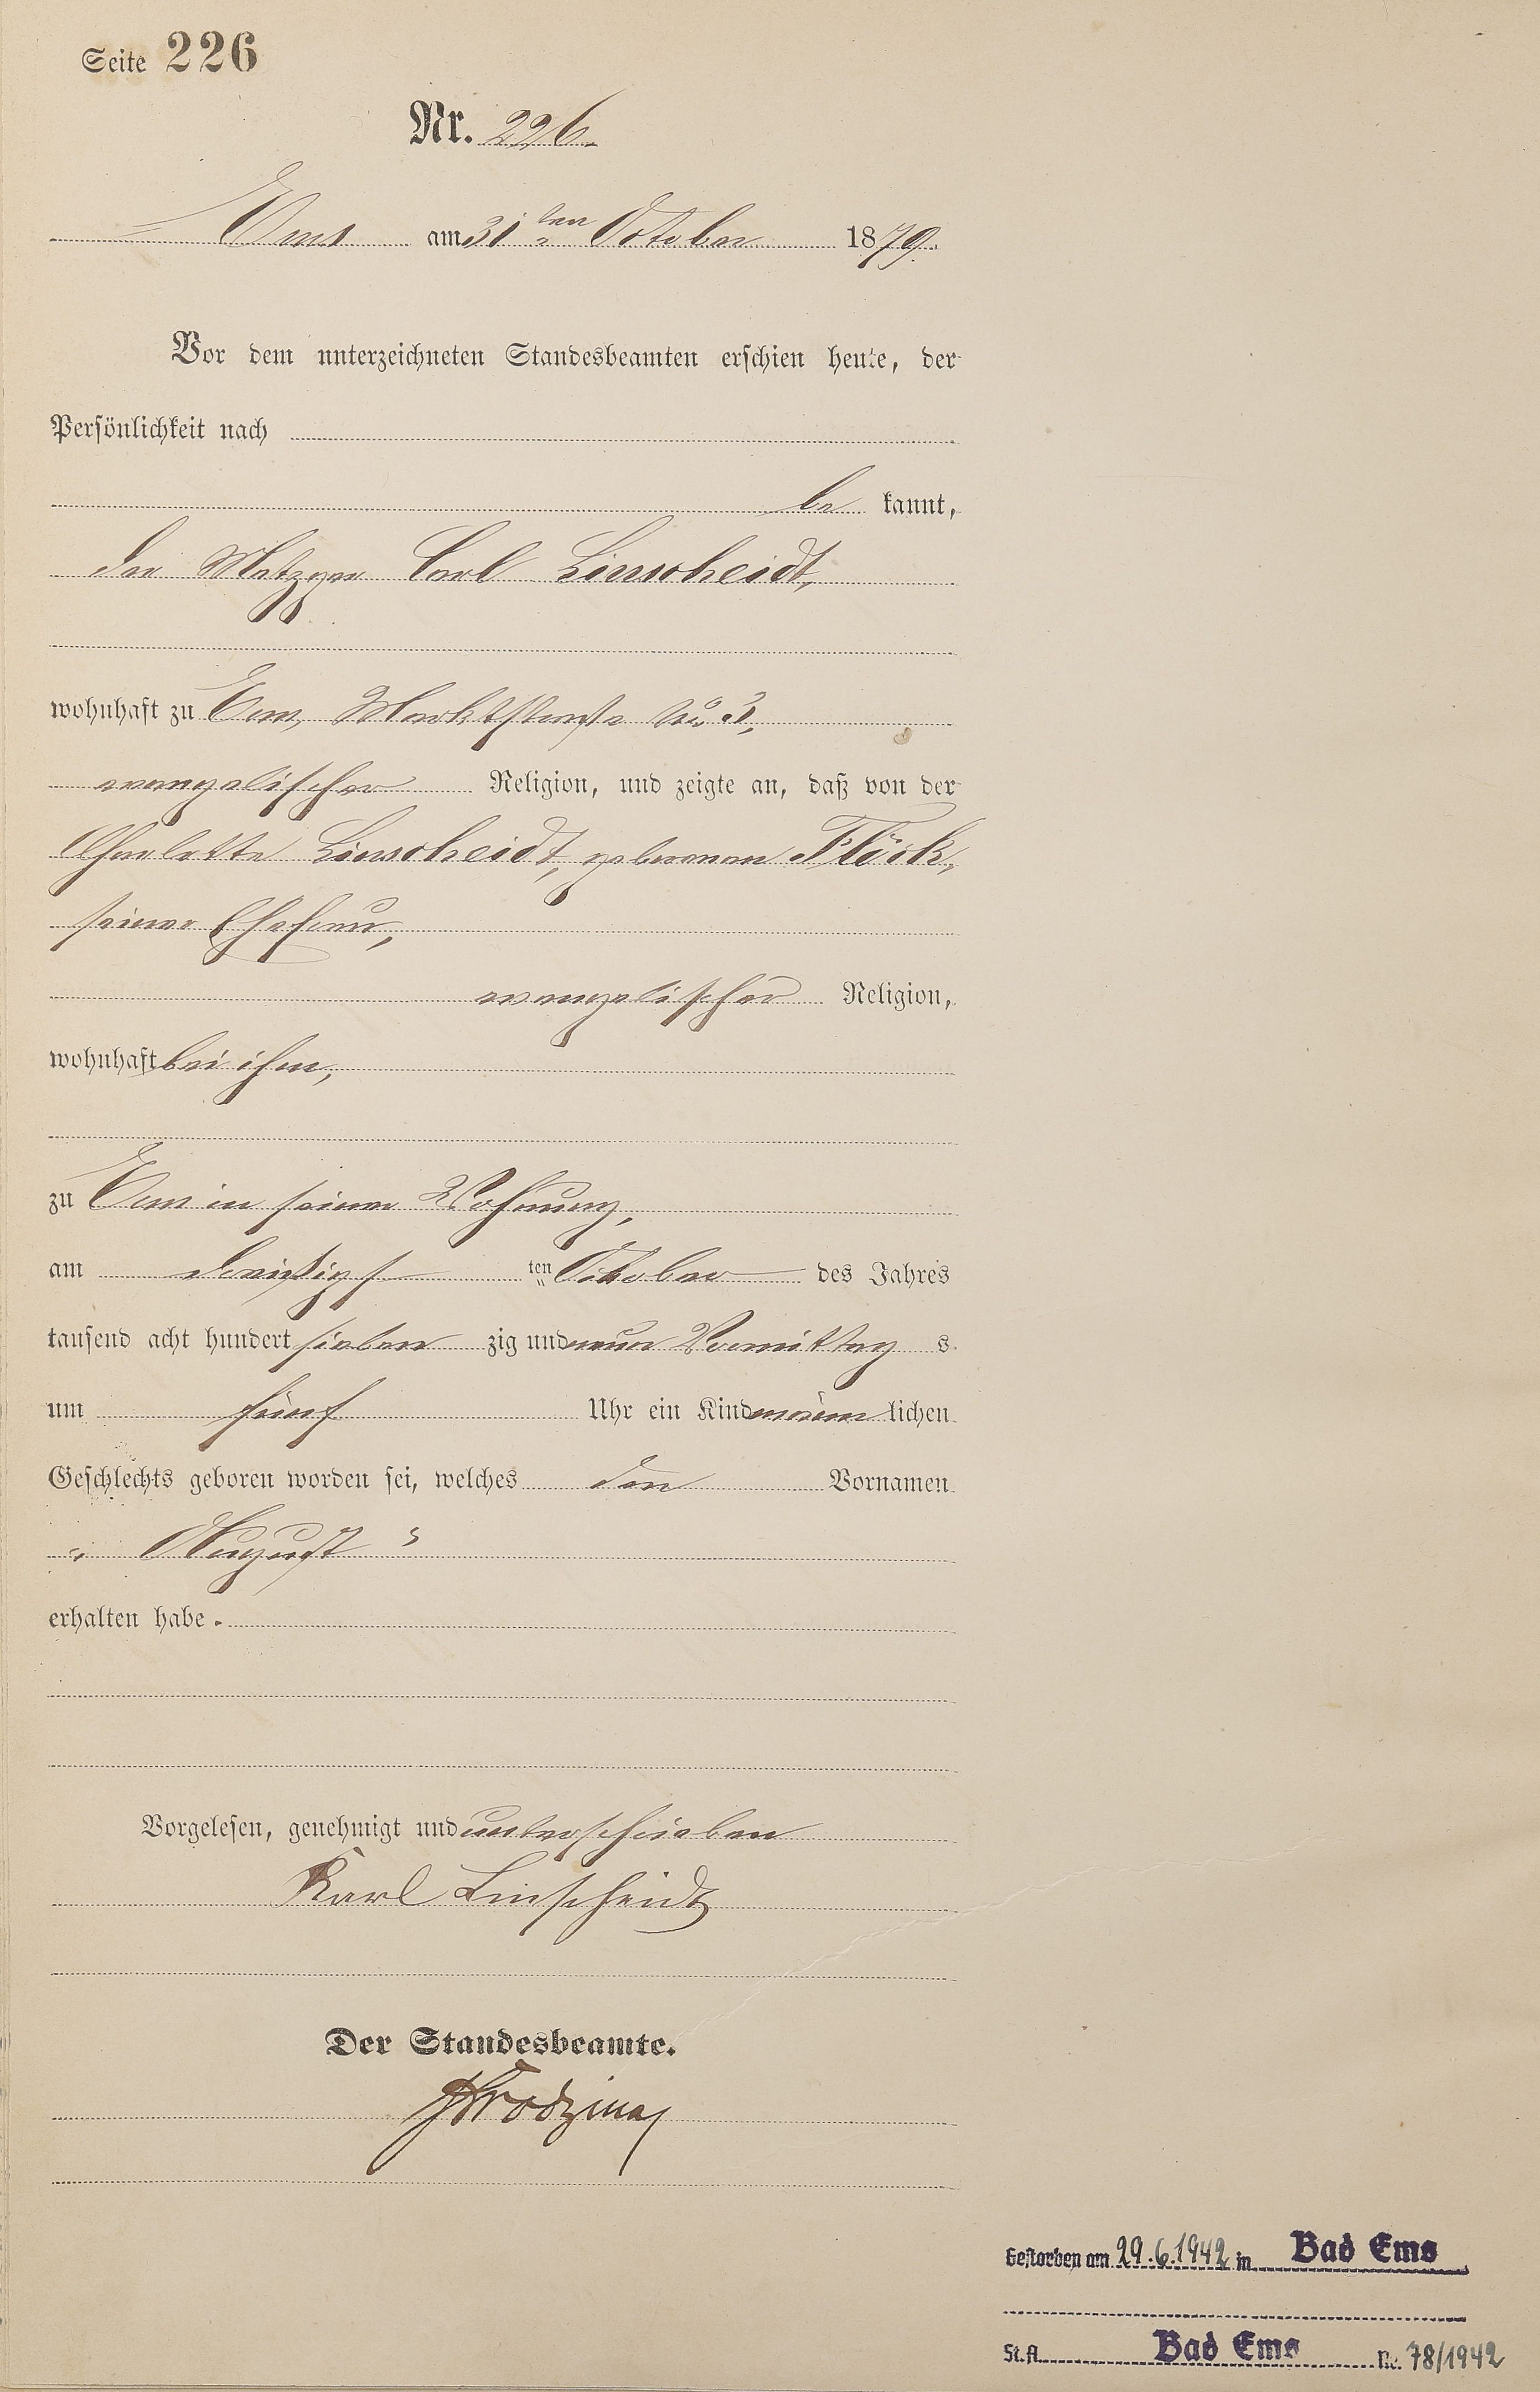 Seite 226
Nr. 226.
Ems am 31ten October 1879.
Vor dem unterzeichneten Standesbeamten erschien heute, der
Persönlichkeit nach
be kannt,
der Metzger Carl Linscheidt,
wohnhaft zu Ems, Marktstraße No 3,
evangelischer Religion, und zeigte an, daß von der
Charlotte Linscheidt, geborenen Flöck,
seiner Ehefrau,
evangelischer Religion,
wohnhaft bei ihm,
zu Ems in seiner Wohnung,
am dreißigs ten October des Jahres
tausend acht hundert sieben zig und neun Vormittag s
um fünf Uhr ein Kind männ lichen
Geschlechts geboren worden sei, welches den Vornamen
„August“
erhalten habe.
Vorgelesen, genehmigt und unterschrieben
Karl Linscheidt
Der Standesbeamte.
Gestorben am 29.6.1942 in Bad Ems
St.A. Bad Ems Nr. 78/1942